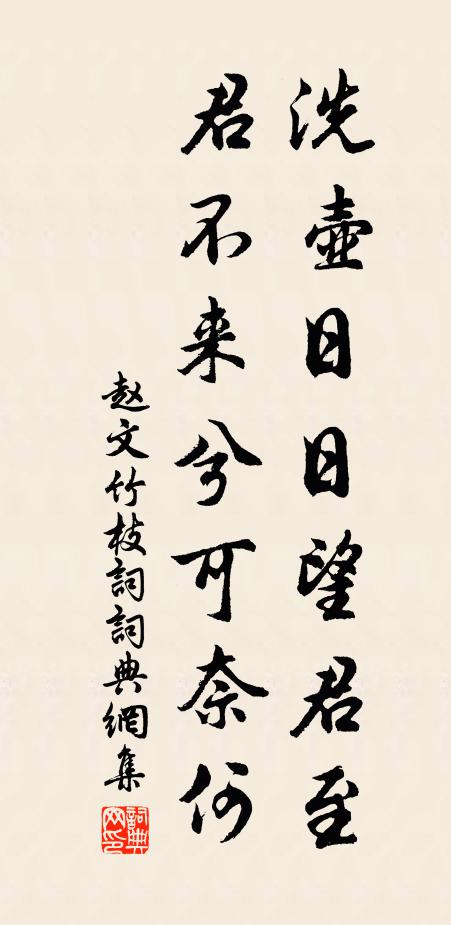 洗壺日日望君至
君不来兮可奈何
赵文竹枝詞詞典網集
詞典
网印